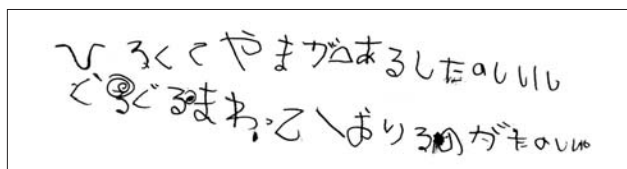 ひろくてやまがあるしたのしいし
ぐるぐるまわって おりるのがたのしい